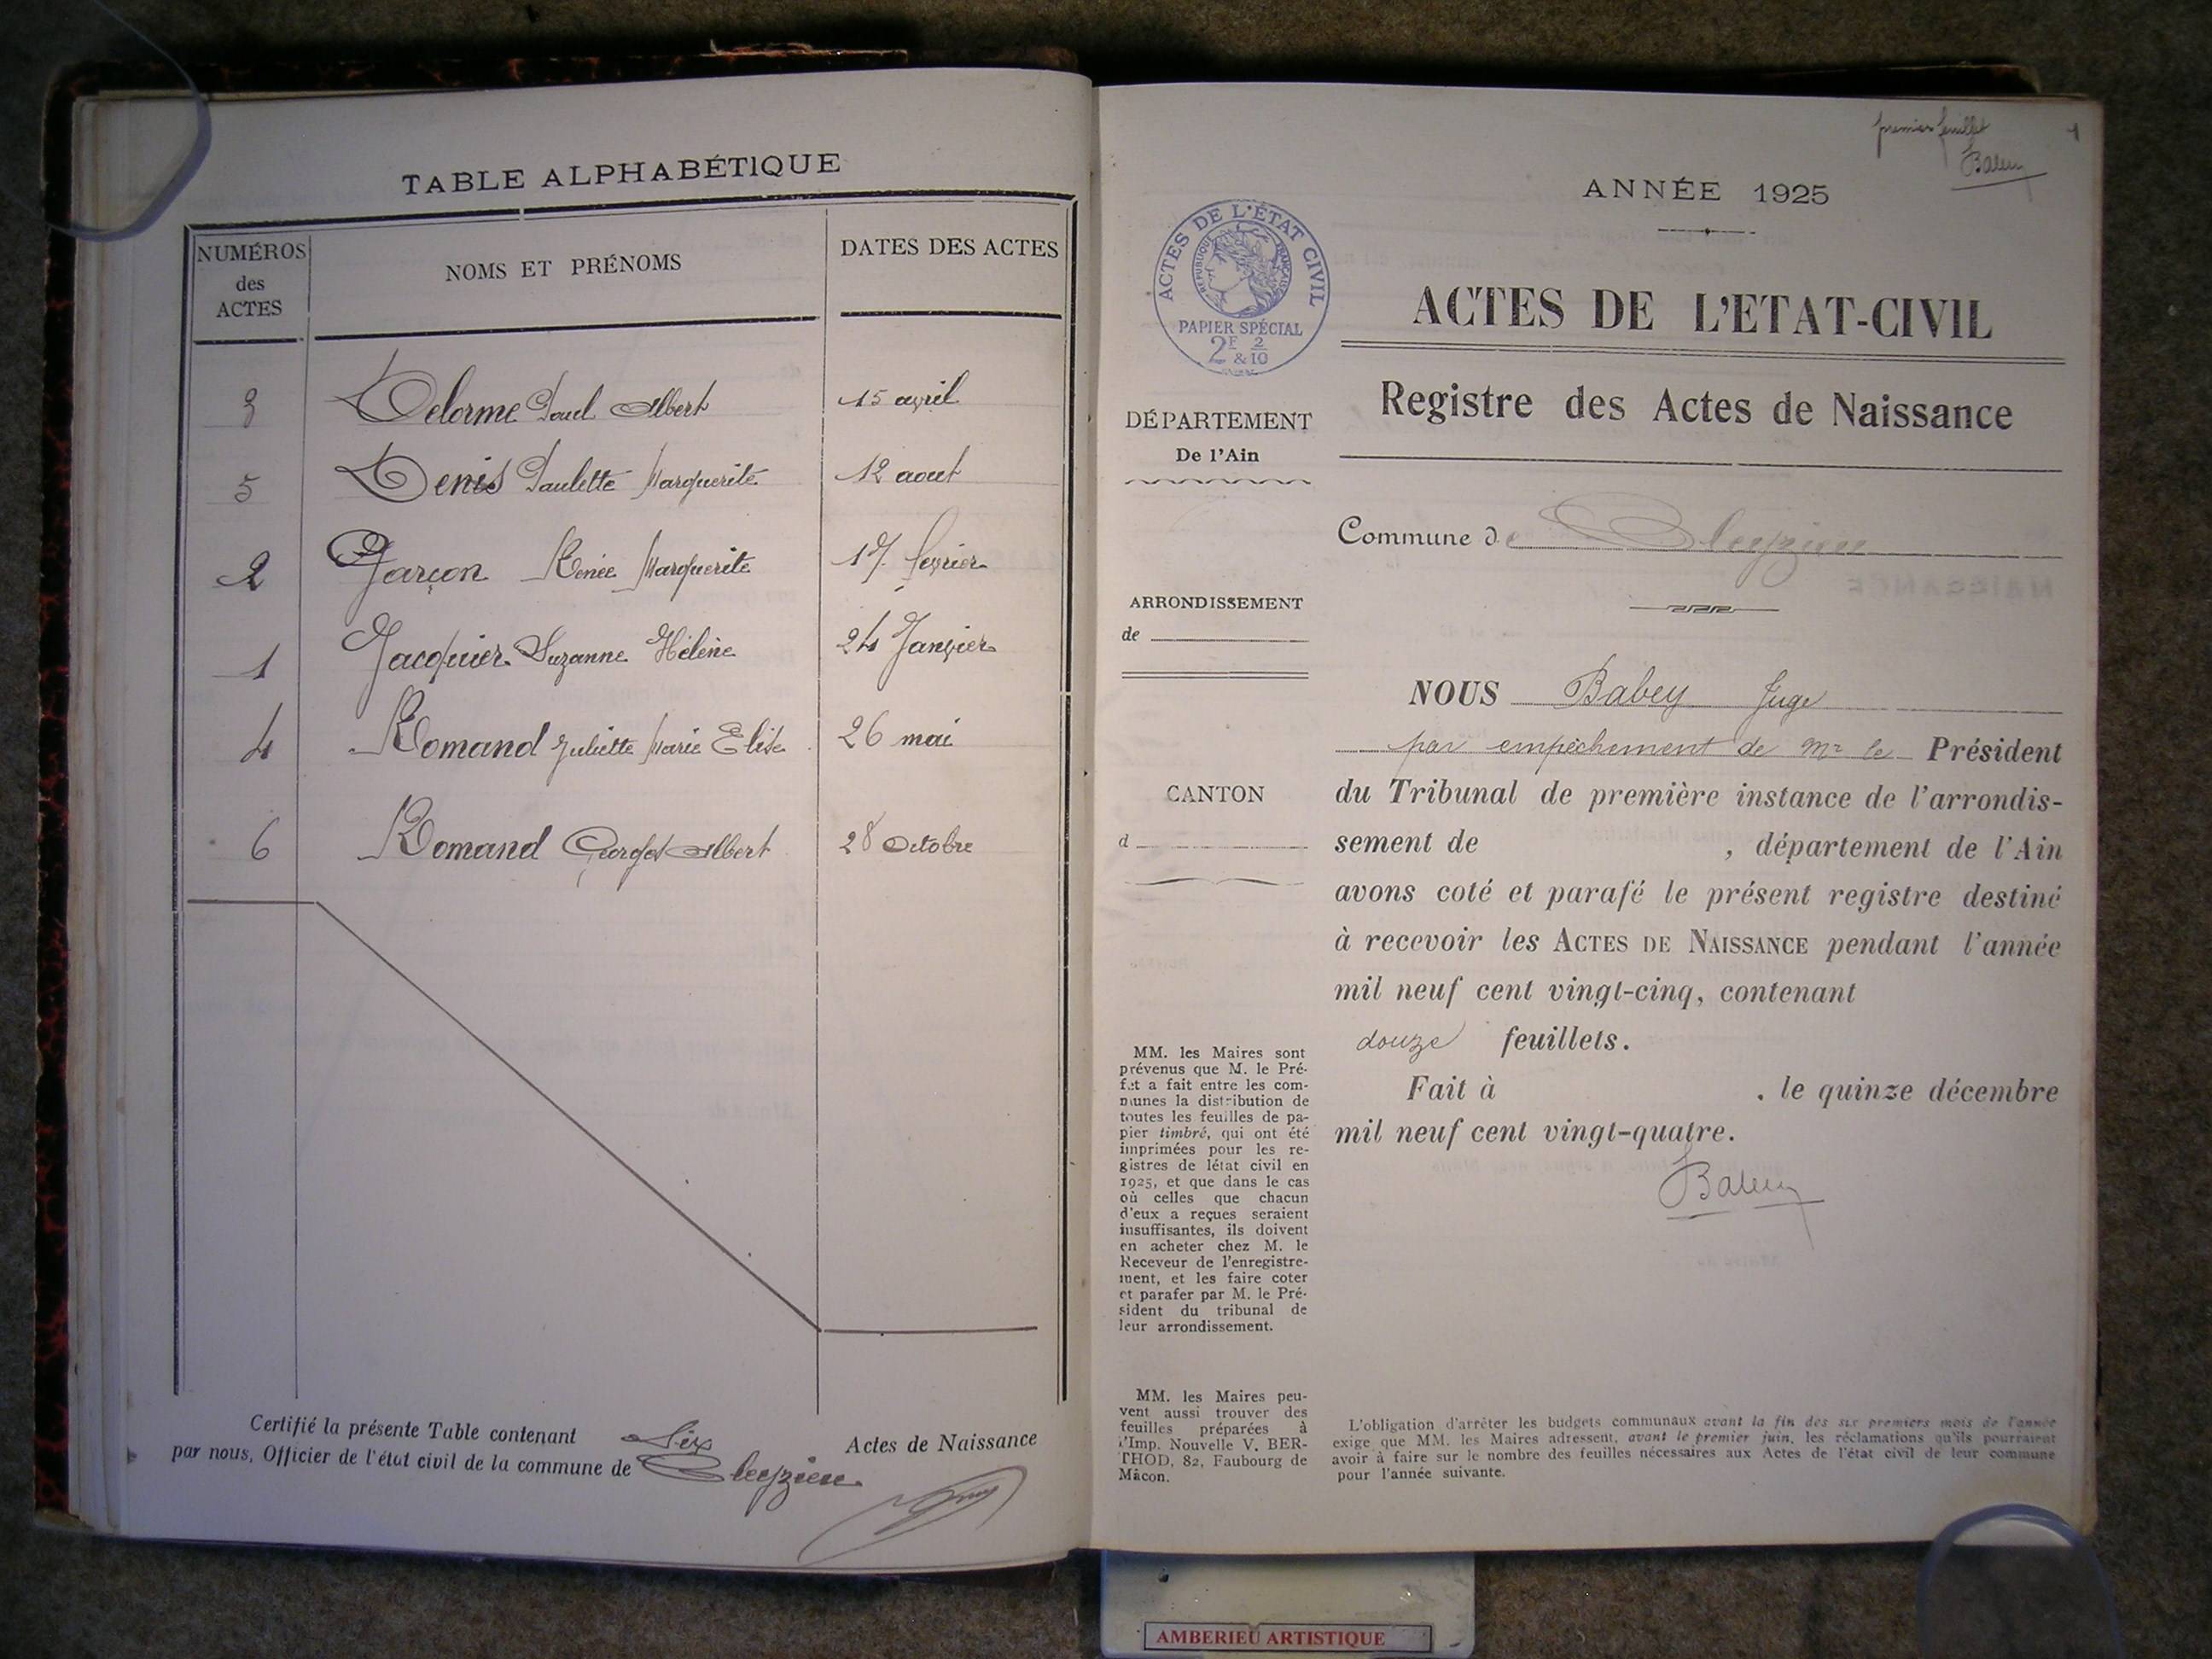 TABLE ALPHABÉTIQUE
NUMÉROS
des
ACTES
NOMS ET PRÉNOMS
DATES DES ACTES
3 Delorme Paul Albert 15 avril
5 Denis Paulette Marguerite 12 aout
2 Garçon Renée Marguerite 17 fevrier
1 Jacquier Suzanne Hélène 24 Janvier
4 Romand Juliette Marie Elise 26 mai
6 Romand Georges Albert 28 Octobre
Certifié la présente Table contenant Six Actes de Naissance
par nous, Officier de l'état civil de la commune de Cleyzieu
premier feuillet 1
ANNÉE 1925
ACTES DE L'ÉTAT CIVIL
RÉPUBLIQUE FRANÇAISE
PAPIER SPÉCIAL
2F 2/10
&
ACTES DE L'ETAT-CIVIL
Registre des Actes de Naissance
DÉPARTEMENT
De l'Ain
Commune de Cleyzieu
ARRONDISSEMENT
de
CANTON
d
NOUS Babey Juge
par empêchement de Mr le Président
du Tribunal de première instance de l'arrondis-
sement de , département de l'Ain
avons coté et parafé le présent registre destiné
à recevoir les ACTES DE NAISSANCE pendant l'année
mil neuf cent vingt-cinq, contenant
douze feuillets.
Fait à , le quinze décembre
mil neuf cent vingt-quatre.
Babey
MM. les Maires sont
prévenus que M. le Pré-
fet a fait entre les com-
munes la distribution de
toutes les feuilles de pa-
pier timbré, qui ont été
imprimées pour les re-
gistres de létat civil en
1925, et que dans le cas
où celles que chacun
d'eux a reçues seraient
insuffisantes, ils doivent
en acheter chez M. le
Receveur de l'enregistre-
ment, et les faire coter
et parafer par M. le Pré-
sident du tribunal de
leur arrondissement.
MM. les Maires peu-
vent aussi trouver des
feuilles préparées à
l'Imp. Nouvelle V. BER-
THOD, 82, Faubourg de
Mâcon.
L'obligation d'arrêter les budgets communaux avant la fin des six premiers mois de l'année
exige que MM. les Maires adressent, avant le premier juin, les réclamations qu'ils pourraient
avoir à faire sur le nombre des feuilles nécessaires aux Actes de l'état civil de leur commune
pour l'année suivante.
AMBERIEU ARTISTIQUE